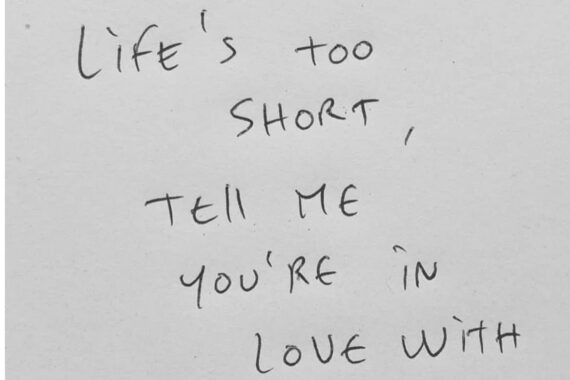 Life's too
SHORT,
TEll ME
YOU'RE iN
LOVE WiTH